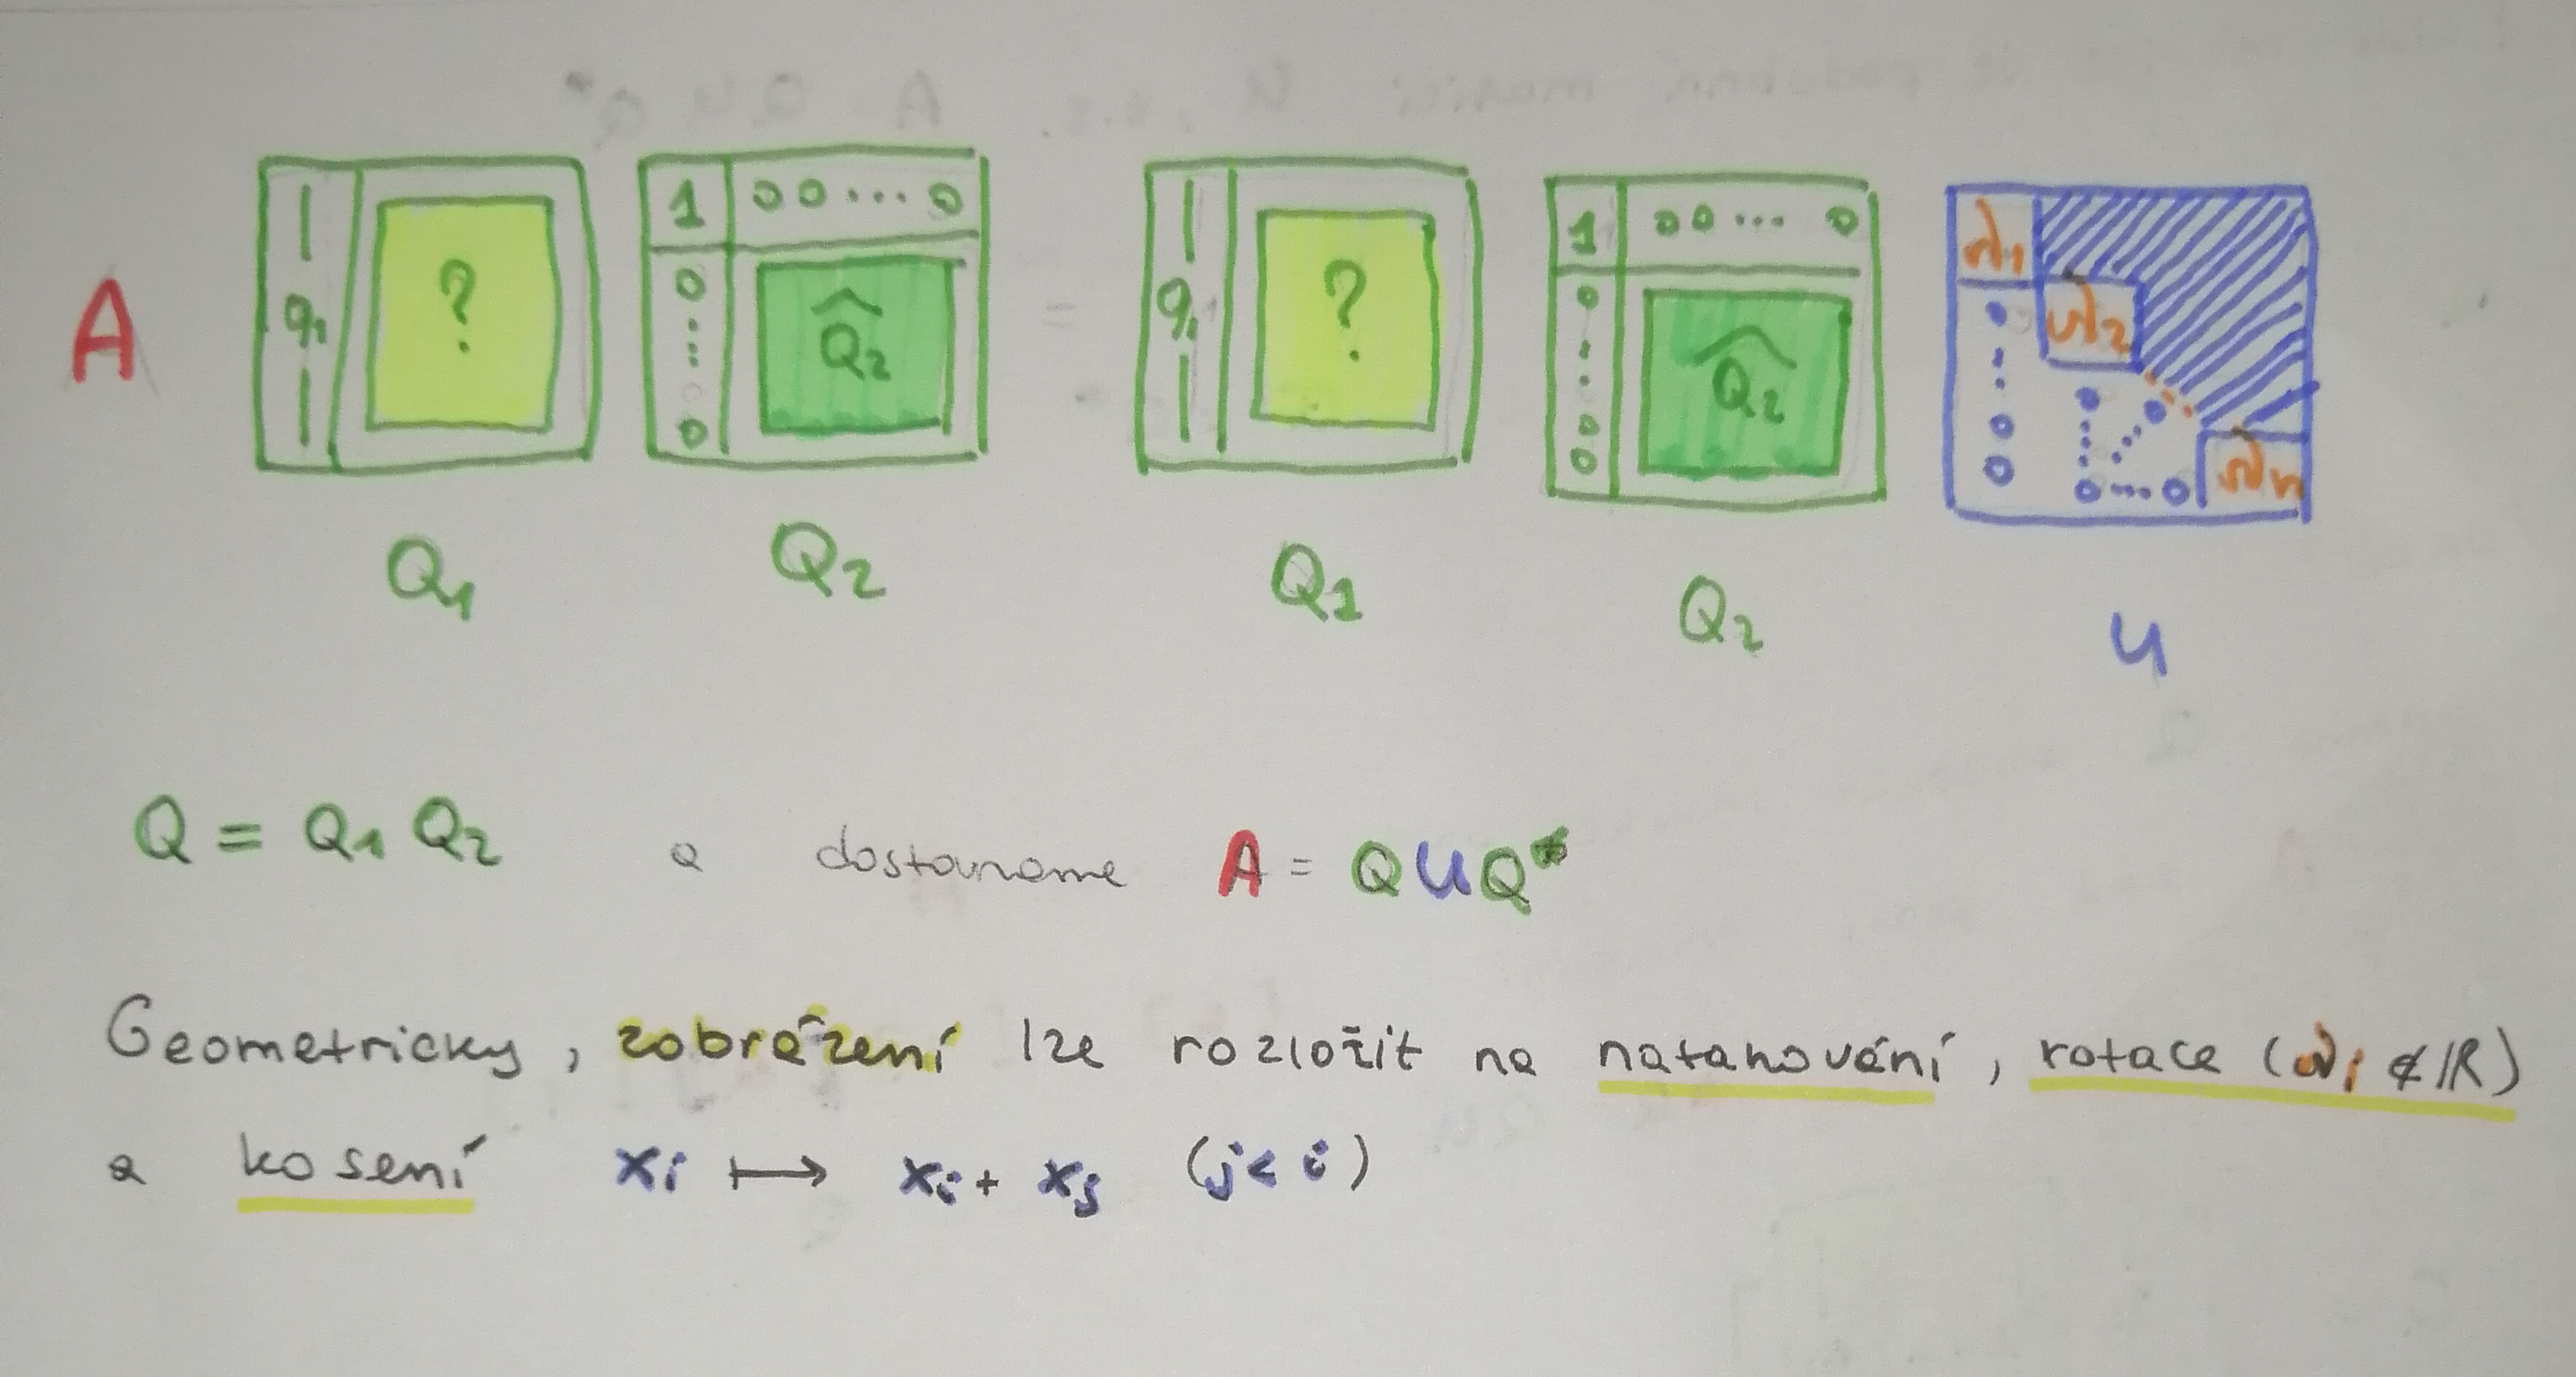 A | q₁ | ? 1 0 0 ... 0 0 ⋮ 0 Q̂₂ = | q₁ | ? 1 0 0 ... 0 0 ⋮ 0 0 Q̂₂ λ₁ 0 ⋮ 0 0 λ₂ 0 ⋮ 0 ... 0 0 λₙ
Q₁ Q₂ Q₁ Q₂ U
Q = Q₁ Q₂ a dostaneme A = QUQ*
Geometricky, zobrazení lze rozložit na natahování, rotace (λᵢ ∉ ℝ)
a kosení xᵢ ↦ xᵢ + xⱼ (j < i)